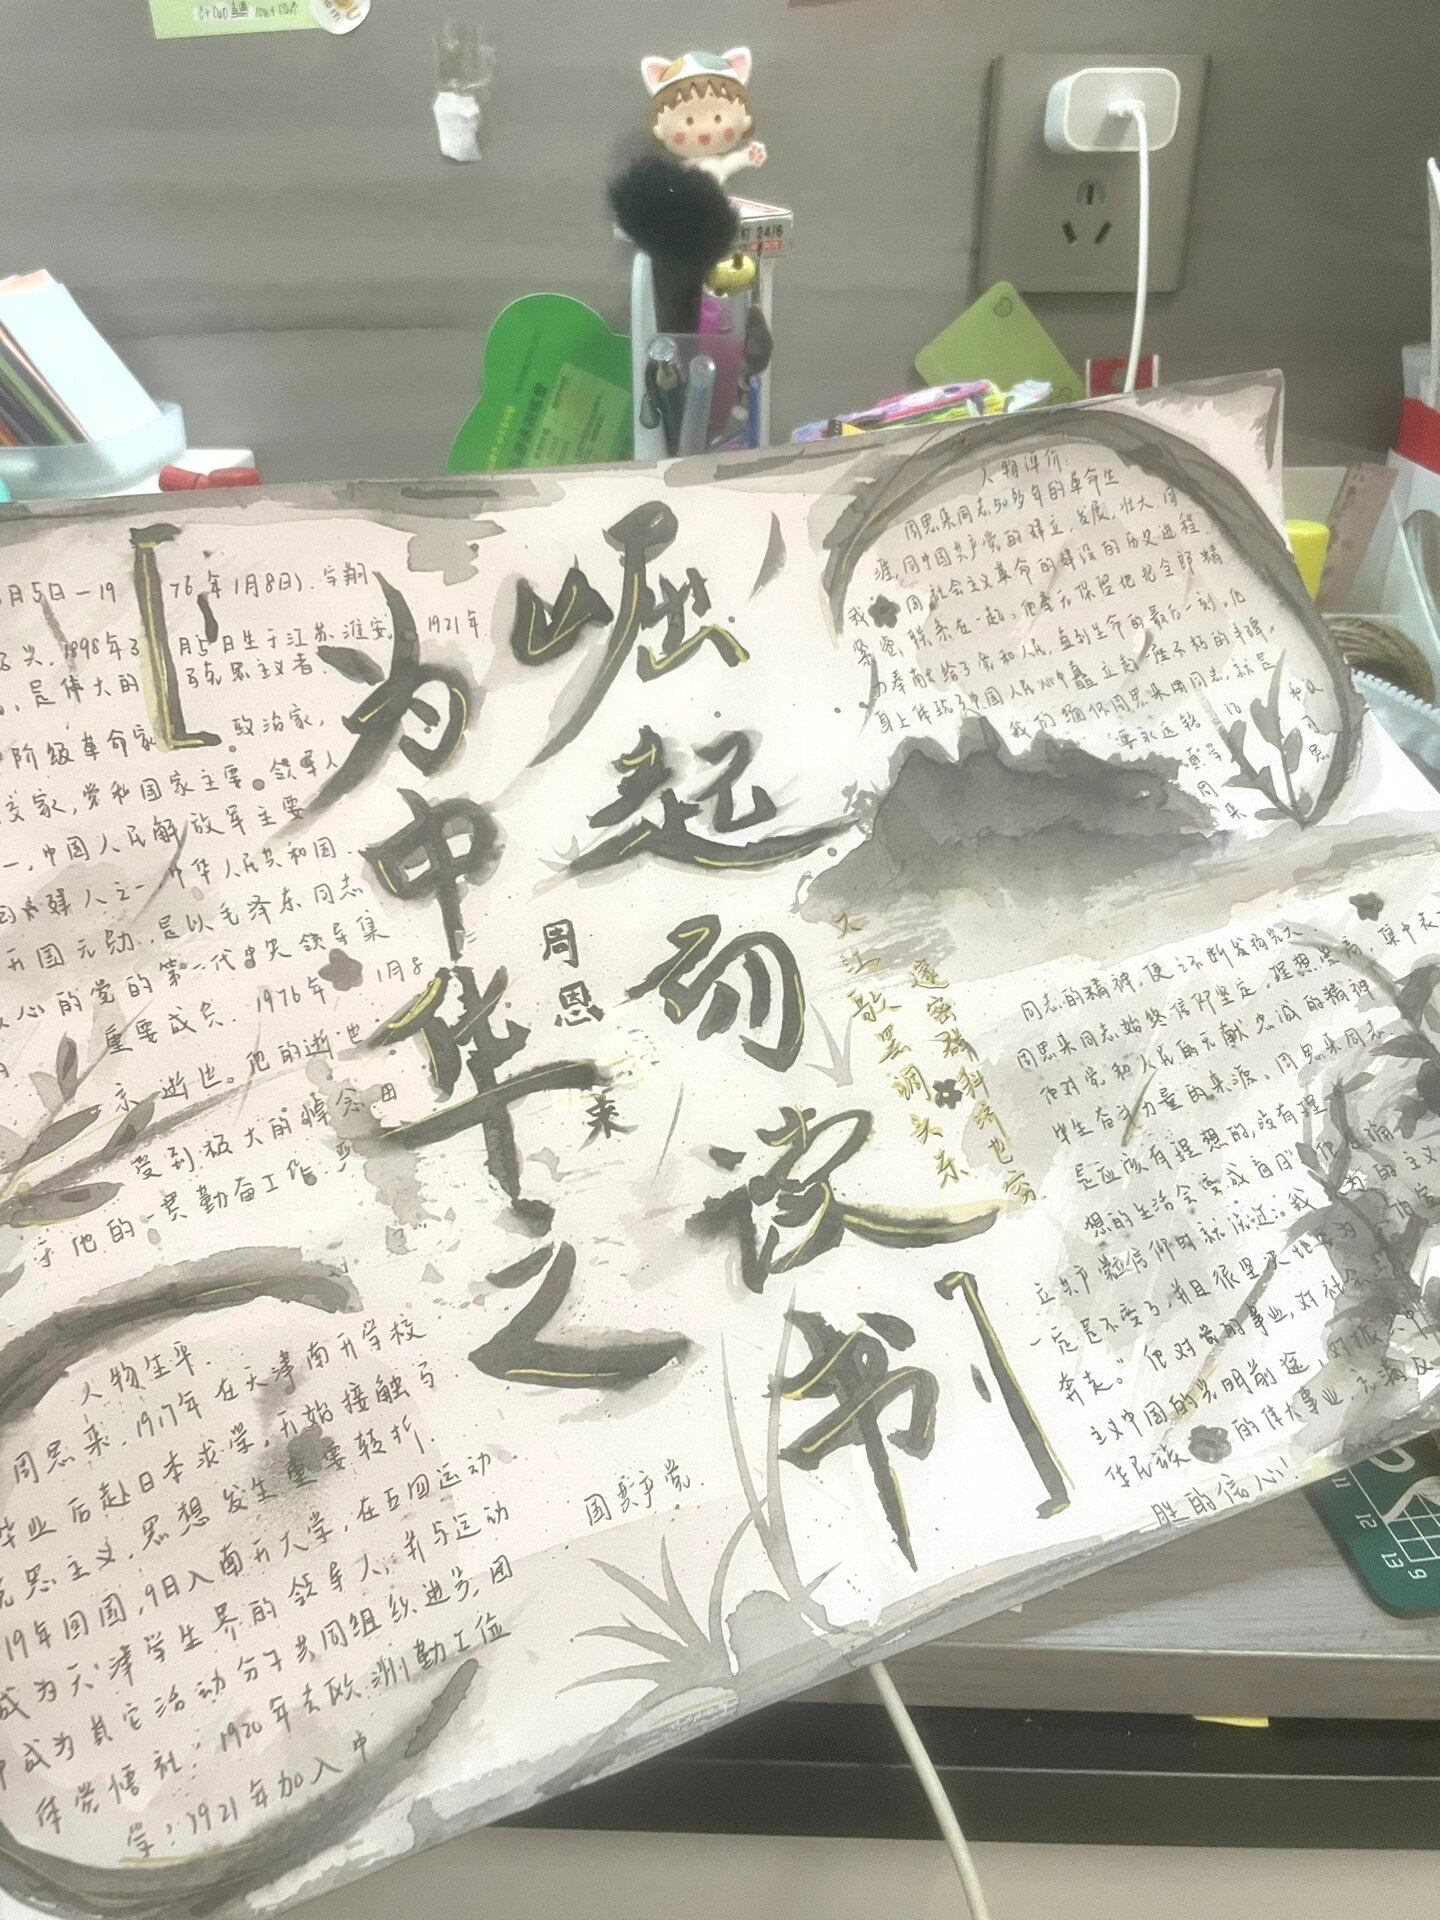 为
中
华
之
崛
起
而
读
书
周
恩
来
大江歌罢掉头东
邃密群科济世穷
月5日-19
76年1月8日).字翔
1898年3
月5日生于江苏淮安.
1921年
是伟大的
克思主义者.
阶级革命家
政治家,
交家,党和国家主要领导人
一,中国人民解放军主要
创建人之一.中华人民共和国
开国元勋.是以毛泽东同志
心的党的第一代中央领导集
重要成员.1976年
1月8
京逝世。他的逝世
受到极大的悼念.由
于他的一贯勤奋工作.严
人物生平.
周恩来.1917年在天津南开学校
毕业后赴日本求学,开始接触马
克思主义,思想发生重要转折.
19年回国,9日入南开大学,在五四运动
成为天津学生界的领导人,并与运动
中成为其它活动分子共同组织进步团
体觉悟社;1920年去欧洲勤工俭
学;1921年加入中
国共产党.
人物评价.
周恩来同志50多年的革命生
涯,同中国共产党的建立,发展,壮大,同
我
同社会主义革命的建设的历史进程
紧密联系在一起,他毫无保留地把全部精
力奉献给了党和人民,直到生命的最后一刻.他
身上体现了中国人民心中矗立起一座不朽的丰碑.
我们缅怀周恩来同志,就是
要永远铭
周
来
同志的精神,使之不断发扬光大.
周恩来同志始终信仰坚定,理想崇高,集中表
他对党和人民的无限忠诚的精神
毕生奋斗力量的来源。周恩来同志
是应该有理想的,没有理
想的生活会变成盲目"他
立共产党信仰时就说过:"我
一定是不变了,并且很坚决地要为
奔走."他对党的事业,对社会
主义中国的光明前途,对振兴中
华民族
的伟大事业,充满
胜的信心!